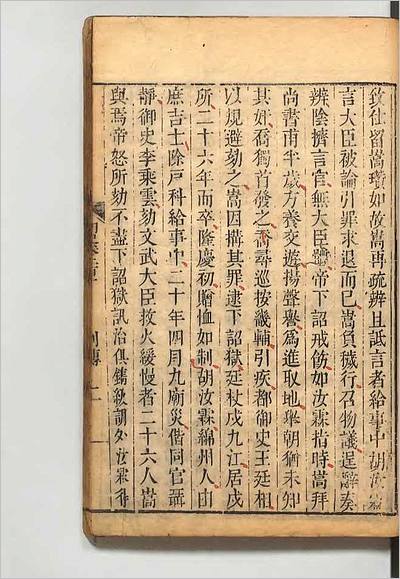 致仕留嵩瓚如故嵩再疏辨且詆言者給事中胡汝霖
言大臣被論引罪求退而已嵩負穢行召物議逞辭奏
辨陰擠言官無大臣體帝下詔戒飭如汝霖指時嵩拜
尚書甫半歲方養交遊揚聲譽爲進取地舉朝猶未知
其奸喬獨首發之喬尋巡按畿輔引疾都御史王廷相
以規避劾之嵩因搆其罪逮下詔獄廷杖戍九江居戍
所二十六年而卒隆慶初贈恤如制胡汝霖綿州人由
庶吉士除戶科給事中二十年四月九廟災偕同官聶
靜御史李乘雲劾文武大臣救火緩慢者二十六人嵩
與焉帝怒所劾不盡下詔獄訊治俱鐫級調外汝霖
列傳